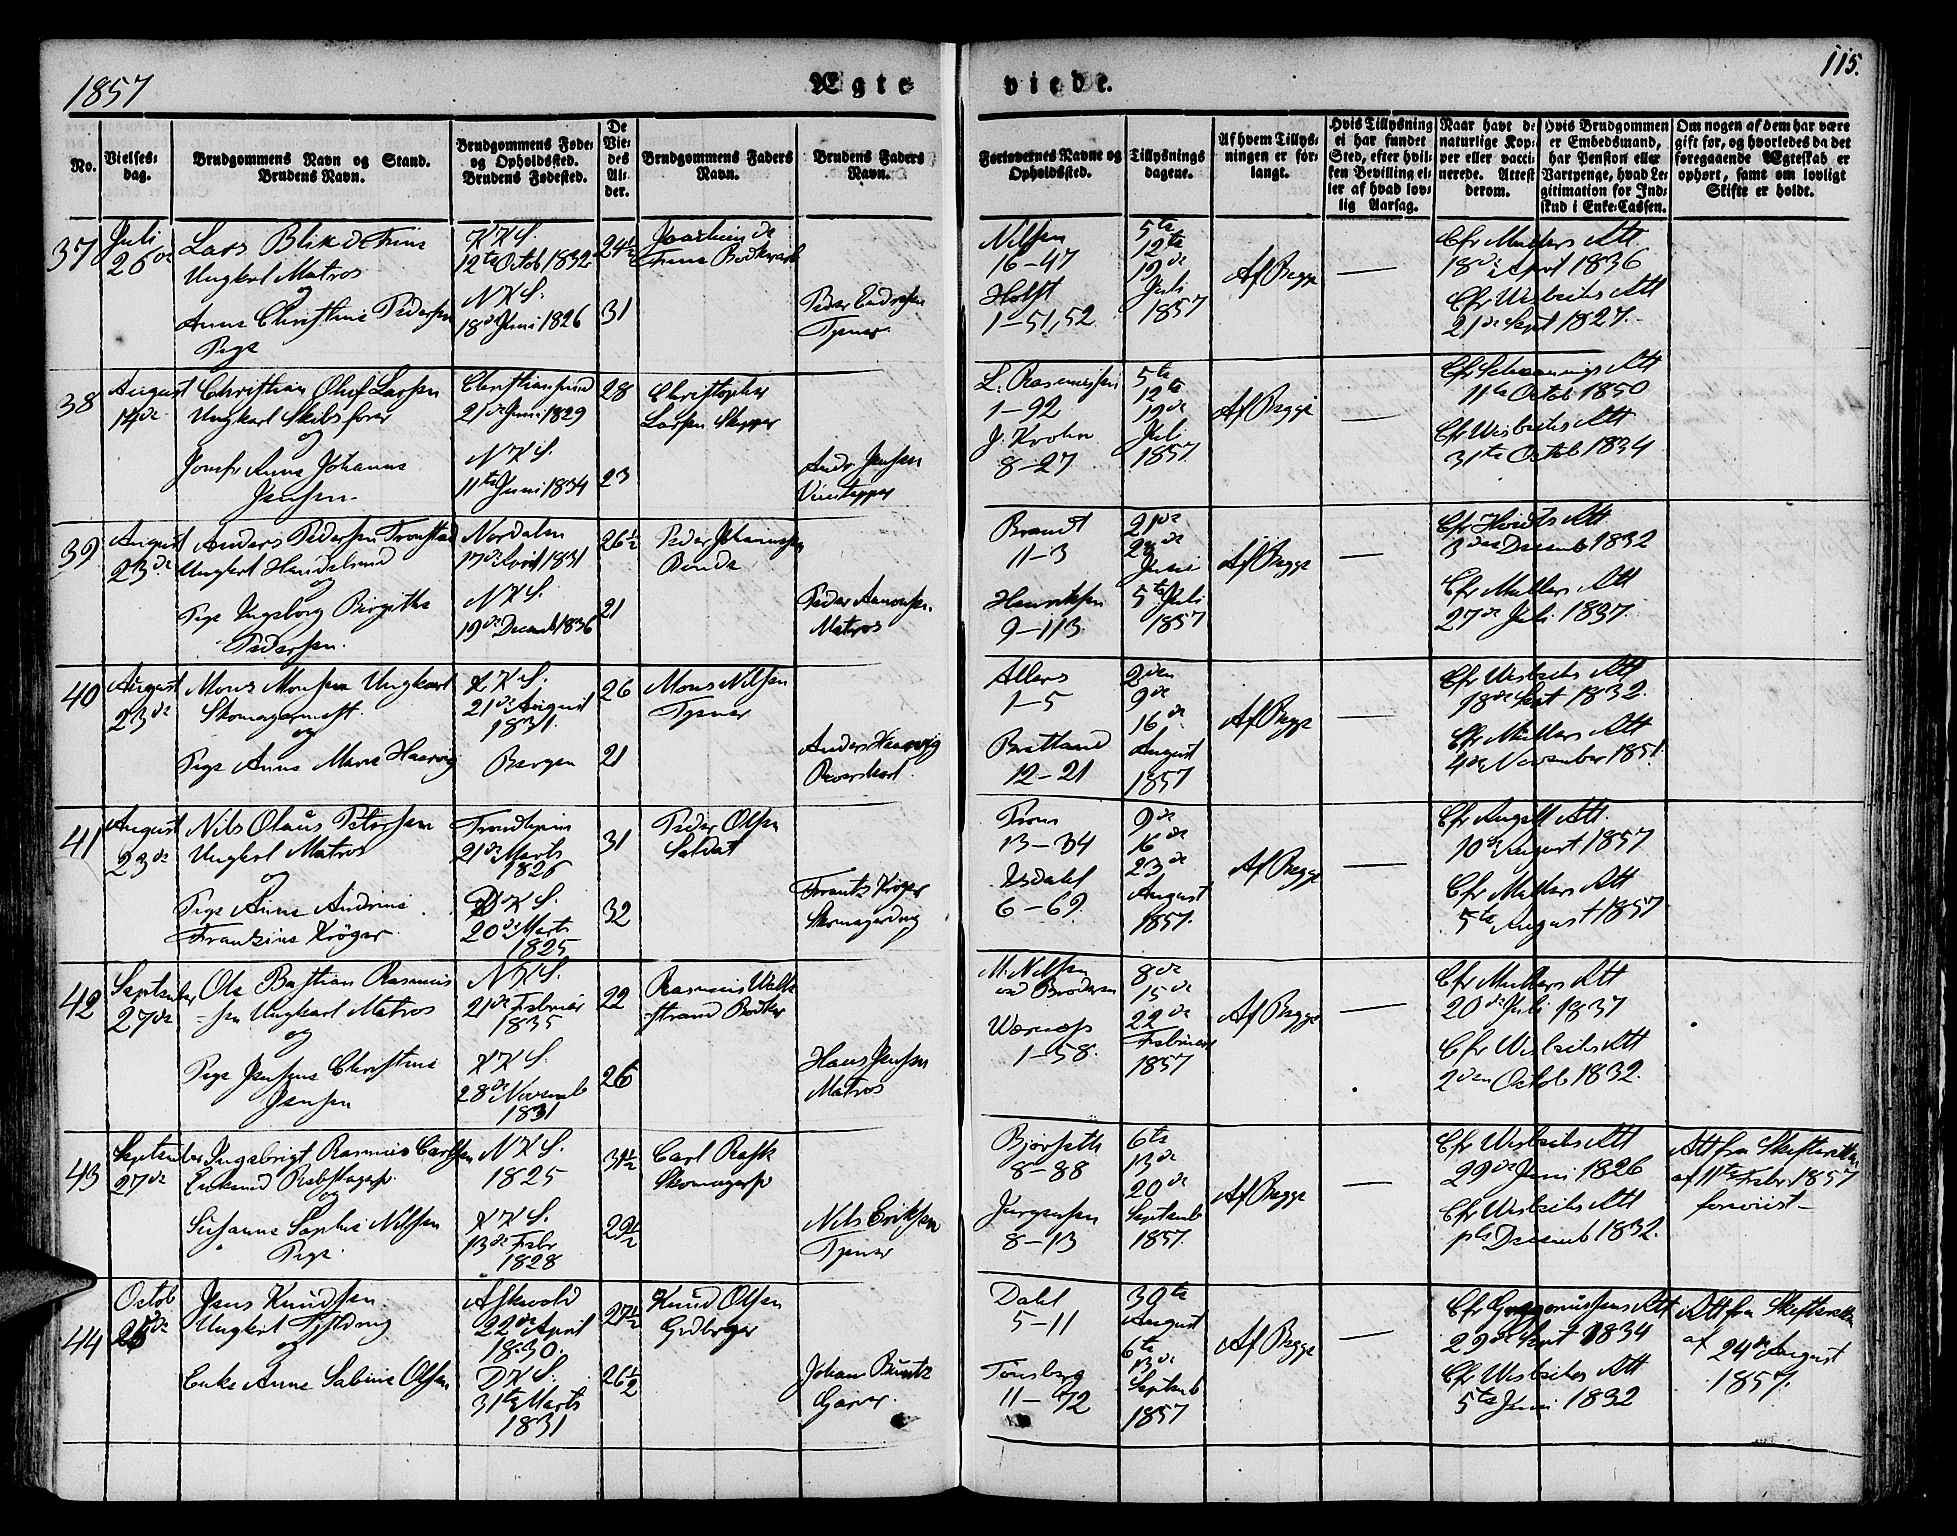 1857
Ægte viede.
115.
No.
Vielses-
dag.
Brudgommens Navn og Stand.
Brudens Navn.
Brudgommens Føde-
og Opholdssted.
Brudens Fødested.
De
Vie-
des
Al-
der.
Brudgommens Faders
Navn.
Brudens Faders
Navn.
Forlovernes Navne og
Opholdssted.
Tillysnings
dagene.
Af hvem Tillys-
ningen er for-
langt.
Hvis Tillysning
ei har fundet
Sted, efter hvil-
ken Bevilling el-
ler af hvad lov-
lig Aarsag.
Naar havt de
naturlige Kop-
per eller vacci-
nerede. Attest
derom.
Hvis Brudgommen
er Embedsmand,
har Pension eller
Vartpenge, hvad Le-
gitimation for Ind-
skud i Enke-Cassen.
Om nogen af dem har være
gift før, og hvorledes da det
foregaaende Ægteskab er
ophørt, samt om lovligt
Skifte er holdt.
37
Juli
26de
Lars Blik de Fine
Ungkarl Matros
Anne Christine Pedersen
Pige
KKS.
12te Octob 1832
NKS.
18de Juni 1826
24½
31
Joachim de
Fine Bødkersvend
Peder Endresen
Tjener
Nilsen
16-47
Holst
1-51,52
5te
12te
19de
Juli
1857
Af Begge
Cfr Mullers Att
18de April 1836
Cfr Wisbechs Att
21de Sept 1827.
38
August
14de
Christian Oluf Larsen
Ungkarl Skibsfører
og
Jomfr Anne Johanne
Jensen
Christiansund
21de Juni 1829
NKS.
11te Juni 1834
28
23
Christopher
Larsen Skipper
Andr. Jensen
Viintapper
L. Rasmussen
1-92
J. Krohn
8-27
5te
12te
19de
Juli
1857
Af Begge
11te Octob 1850
Cfr Wisbechs Att
31te Octob 1834
39
August
23de
Anders Pedersen Tronstad
Ungkarl Handelsmd
og
Pige Ingeborg Birgithe
Pedersen.
Nordalen
17de April 1831
NKS.
19de Decemb 1836
26½
21
Peder Johannesen
Bonde
Peder Aamonsen
Matros
Brandt
11-3
Henriksen
9-113
21de
28de
Juni
5te Juli
1857
Af Begge
3die Decemb 1832
Cfr Mullers Att
27de Juli 1837.
40
August
23de
Mons Monsen Ungkarl
Skomagermest.
og
Pige Anne Marie Haarvig
KKS.
21de August
1831.
Bergen
26
21
Mons Nilsen
Tjener
Anders Haarvig
Allers
1-5
Bratland
12-21
2den
9de
16de
August
1857
Af Begge
Cfr Wisbechs Att
18de Sept 1832.
Cfr Mullers Att
4de November 1851.
41
August
23de
Nils Olaus Petersen
Ungkarl Matros
og
Pige Anne Andrine
Frantzine Krøger
Trondhjem
21de Marts
1826
DKS.
20de Marts
1825
31
32
Peder Olsen
Soldat
Frantz Krøger
13-34
Isdahl
6-69.
9de
16de
23de
August
1857.
Af Begge
Cfr Angell Att.
10de August 1857
Cfr Mullers Att
5te August 1857
42
September
27de
Ole Bastian Rasmus-
sen Ungkarl Matros
og
Pige Jensine Christine
Jensen
NKS.
21de Februar
1835
KKS.
28de Novemb
1831
22
26
Rasmus Walle
strand Bødker
Hans Jensen
Matros
M. Nilsen
ved Brodersen
1-58.
8de
15de
22de
Februar
1857
Af Begge
Cfr Mullers Att
20de Juli 1837
Cfr Wisbechs Att
2den Octob 1832.
43
September
27de
Ingebrigt Rasmus Carlsen
Enkemd Rebslagersv.
og
Susanne Sophie Nilsen
Pige.
NKS.
1825
KKS.
13de Febr
1828
31½
29½
Carl Rask
Skomagersv
Nils Eriksen
Tjener
Bjørseth
8-88
Jurgensen
8-13
6te
13de
20de
Septemb
1857.
Af Begge
Cfr Wisbechs Att
29de Juni 1826
Cfr Wisbechs Att
Decemb 1832.
Att fra Skifteretten
af 11te Febr 1857
foreviist-
44
Octob
Jens Knudsen
Ungkarl
og
Enke Anne Sabine Olsen
Askvold
22de April
1830.
DKS.
31te Marts
1831
27½
26½
Knud Olsen
Gdbruger
Johan Buntz
Garver.
Dahl
5-11
Tønsberg
11-72
30te
August
6te
13de
Septemb
1857
Af Begge
29de Sept 1834
Cfr Wisbechs Att
5te Juni 1832
Att fra Skifteretten
af 24de August
1857.